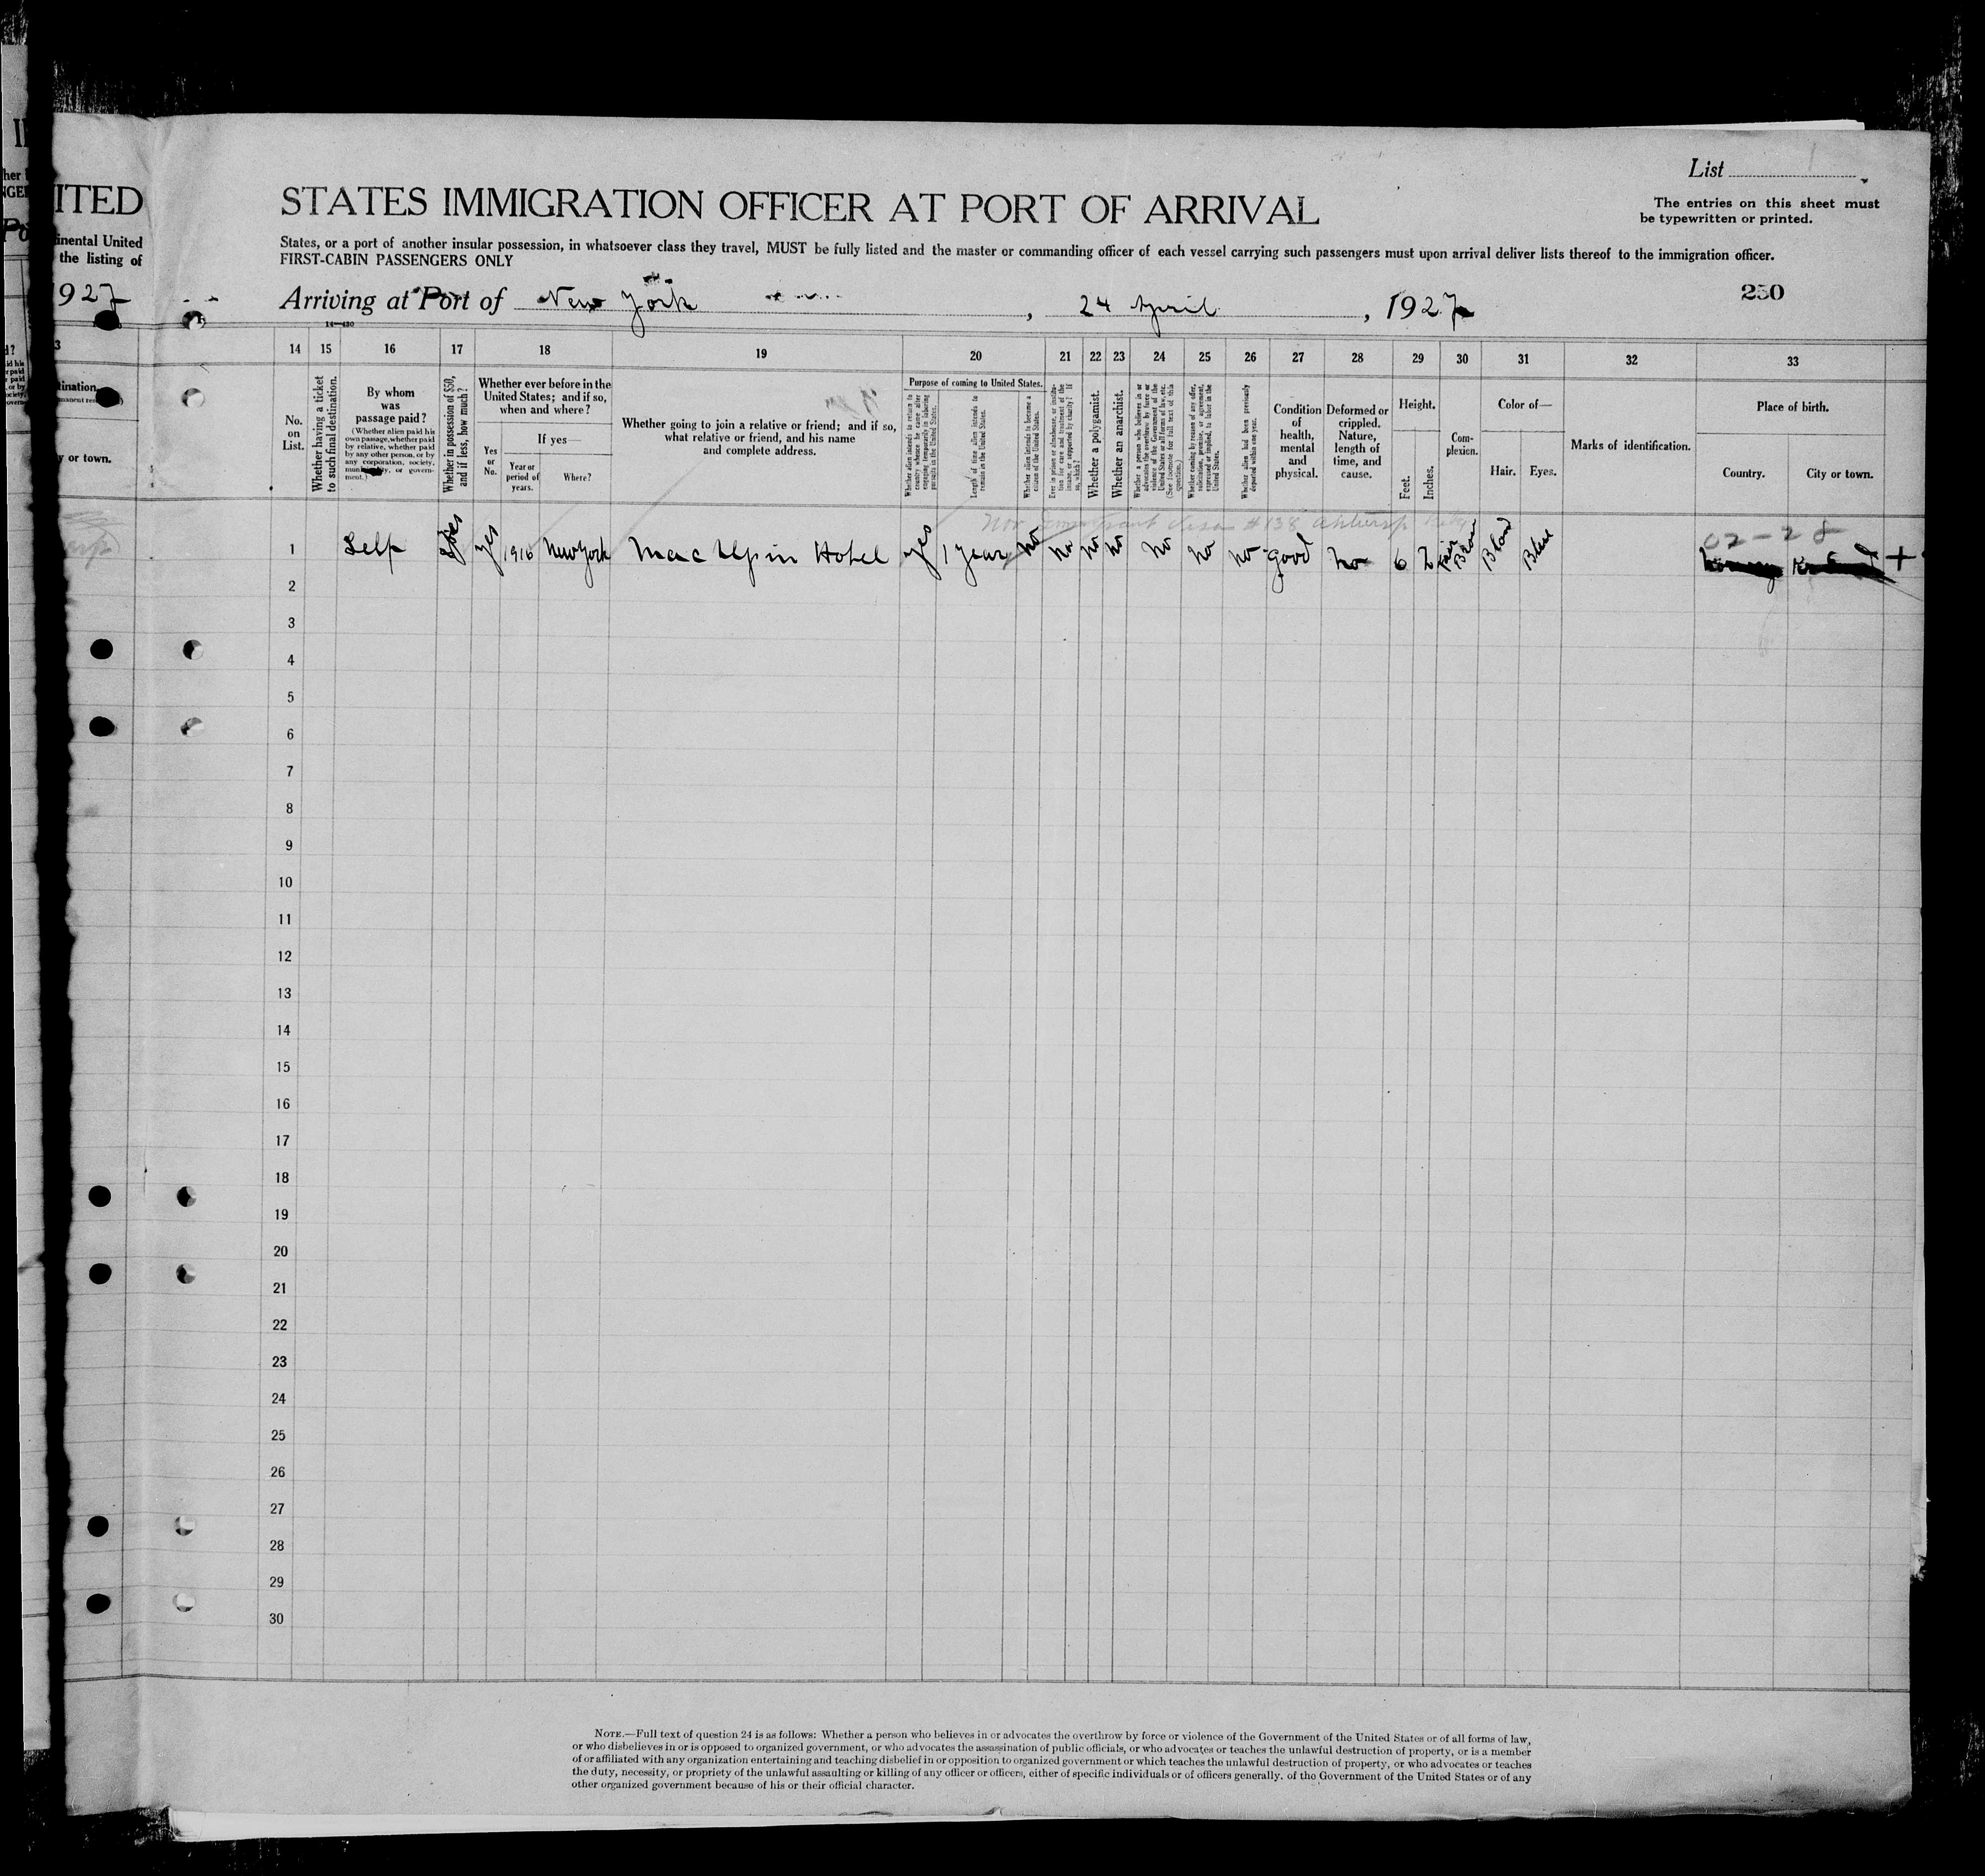 List 1
ITED STATES IMMIGRATION OFFICER AT PORT OF ARRIVAL
The entries on this sheet must
be typewritten or printed.
inental United
the listing of
States, or a port of another insular possession, in whatsoever class they travel, MUST be fully listed and the master or commanding officer of each vessel carrying such passengers must upon arrival deliver lists thereof to the immigration officer.
FIRST-CABIN PASSENGERS ONLY
1927
Arriving at Port of New York, 24 April, 1927
250
14—430
3 14 15 16 17 18 19 20 21 22 23 24 25 26 27 28 29 30 31 32 33
tination.
y or town.
No. on List.
Whether having a ticket to such final destination.
By whom was passage paid?
(Whether alien paid his own passage, whether paid by relative, whether paid by any other person, or by any corporation, society, municipality, or government.)
Whether in possession of $50, and if less, how much?
Whether ever before in the United States; and if so, when and where?
Yes or No.
If yes—
Year or period of years.
Where?
Whether going to join a relative or friend; and if so, what relative or friend, and his name and complete address.
Purpose of coming to United States.
Whether alien intends to return to country whence he came after engaging temporarily in laboring pursuits in the United States.
Length of time alien intends to remain in the United States.
Whether alien intends to become a citizen of the United States.
Ever in prison or almshouse, or institution for care and treatment of the insane, or supported by charity? If so, which?
Whether a polygamist.
Whether an anarchist.
Whether a person who believes in or advocates the overthrow by force or violence of the Government of the United States or all forms of law, etc. (See footnote for full text of this question.)
Whether coming by reason of any offer, solicitation, promise, or agreement, expressed or implied, to labor in the United States.
Whether alien had been previously deported within one year.
Condition of health, mental and physical.
Deformed or crippled. Nature, length of time, and cause.
Height.
Feet.
Inches.
Complexion.
Color of—
Hair.
Eyes.
Marks of identification.
Place of birth.
Country.
City or town.
Non immigrant visa #138 Antwerp
02-28
1 Self yes yes 1916 New York Mac Alpin Hotel yes 1 year no no no no no no no good no 6 2 Fair Blond Blue +
2
3
4
5
6
7
8
9
10
11
12
13
14
15
16
17
18
19
20
21
22
23
24
25
26
27
28
29
30
NOTE.—Full text of question 24 is as follows: Whether a person who believes in or advocates the overthrow by force or violence of the Government of the United States or of all forms of law,
or who disbelieves in or is opposed to organized government, or who advocates the assassination of public officials, or who advocates or teaches the unlawful destruction of property, or is a member
of or affiliated with any organization entertaining and teaching disbelief in or opposition to organized government or which teaches the unlawful destruction of property, or who advocates or teaches
the duty, necessity, or propriety of the unlawful assaulting or killing of any officer or officers, either of specific individuals or of officers generally, of the Government of the United States or of any
other organized government because of his or their official character.